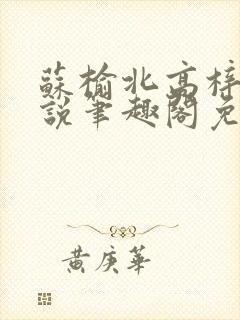 蘇榆北高梓
說筆趣閣免
黃庚華